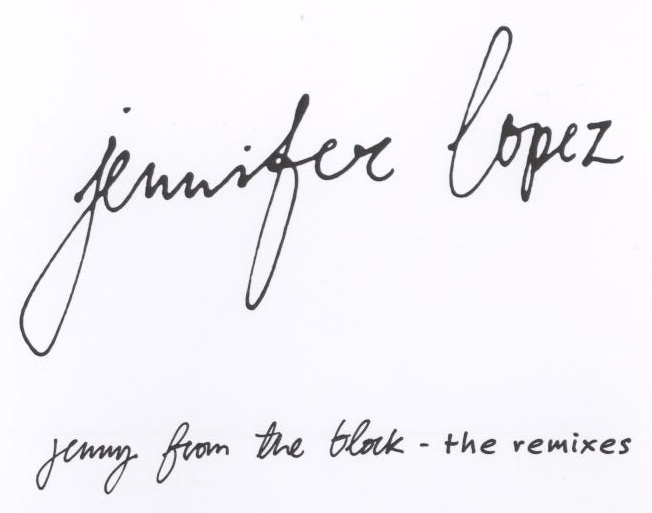 jennifer lopez
jenny from the block - the remixes